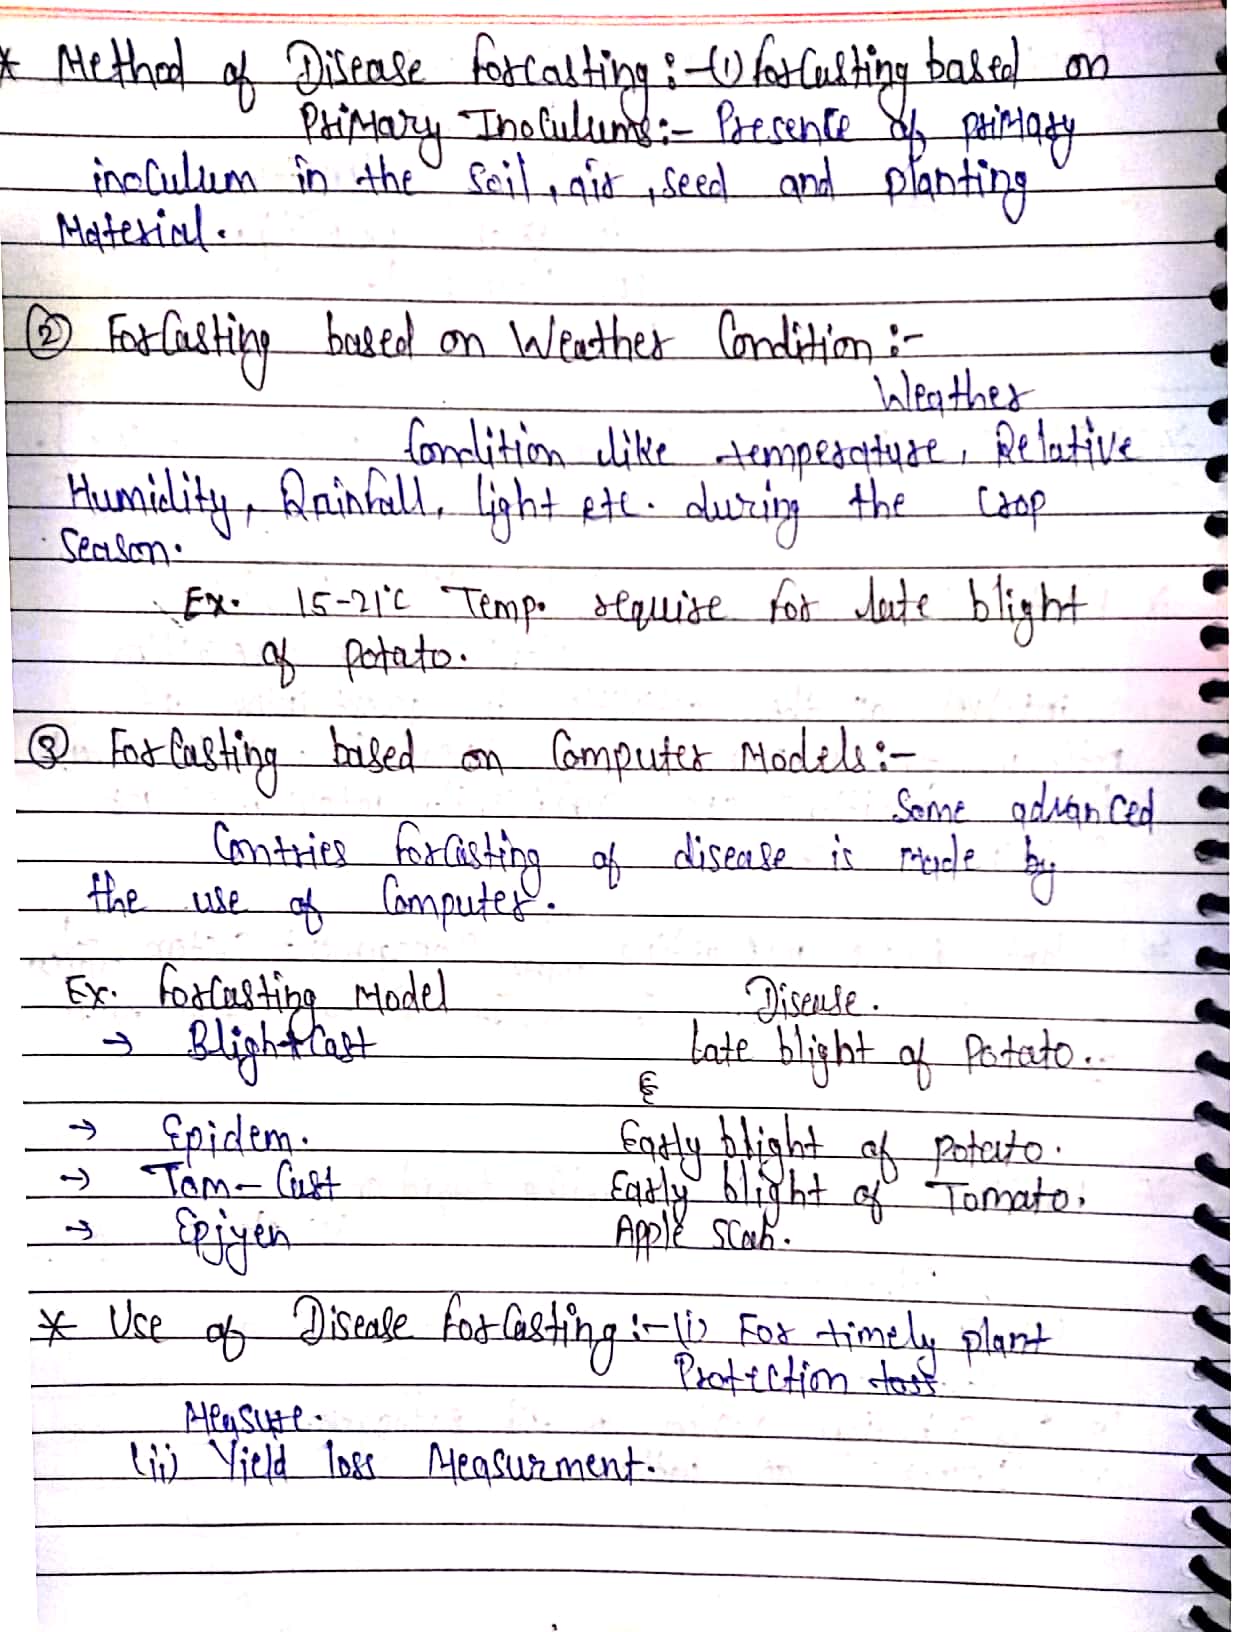 * Method of Disease forcasting :- (1) forcasting based on
Primary Inoculums :- Presence of primary
inoculum in the soil, air, seed and planting
Material.
② Forcasting based on Weather Condition :-
Weather
Condition like temperature, Relative
Humidity, Rainfall, light etc. during the crop
Season.
Ex. 15-21°C Temp. require for late blight
of potato.
③ Forcasting based on Computer Models :-
Some advanced
Contries forcasting of disease is made by
the use of Computer.
Ex. forcasting Model Disease.
→ Blightcast Late blight of Potato.
→ Epidem. Early blight of potato.
→ Tom-Cast Early blight of Tomato.
→ Epjyen Apple Scab.
* Use of Disease forcasting :- (i) For timely plant
Protection
Measure.
(ii) Yield loss Measurment.